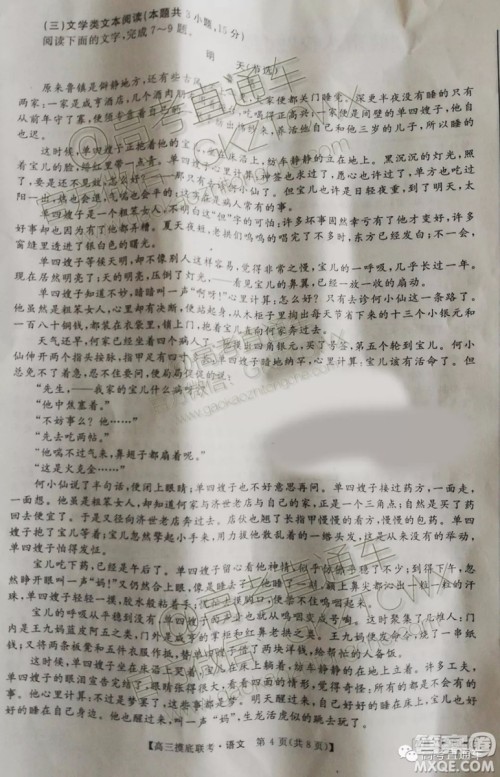 (三)文学类文本阅读(本题共3小题,15分)
阅读下面的文字,完成7～9题。
明 天(节选)
原来鲁镇是僻静地方,还有些古
两家:一家是咸亨酒店,几个酒肉朋
家便都关门睡觉。深更半夜没有睡的
吃喝得正高兴;一家便是间壁的单四嫂子,他自
从前年守了寡,便须专靠着自己的
养活他自己和他三岁的儿子,所以睡的
也迟。
这时候,单四嫂子正抱着他的宝
坐在床沿上,纺车静静的立在地上。黑沉沉的灯光,照
着宝儿的脸,绯红里带一点青。单四嫂子心里计算:神签也求过了,愿心也许过了,单方也吃过
了,要是还不见效,怎么好?
那只有去诊何小仙了。但宝儿也许是日轻夜重,到了明天,太
阳一出,热也会退,气喘也会平的
单四嫂子是一个粗笨女人,不明白这“但”字的可怕:许多坏事固然幸亏有了他才变好,许多
好事却也因为有了他都弄糟。夏天夜短,老拱们呜呜的唱完了不多时,东方已经发白;不一会,
窗缝里透进了银白色的曙光。
单四嫂子等候天明,却不像别人这样容易,觉得非常之慢,宝儿的一呼吸,几乎长过一年。
现在居然明亮了;天的明亮,压倒了灯光,——看见宝儿的鼻翼,已经一放一收的扇动。
单四嫂子知道不妙,暗暗叫一声“阿呀!”心里计算:怎么好?只有去诊何小仙这一条路了。
他虽然是粗笨女人,心里却有决断,便站起身,从木柜子里掏出每天节省下来的十三个小银元和
一百八十铜钱,都装在衣袋里,锁上门,抱着宝儿直向何家奔过去。
天气还早,何家已经坐着四个病人了。他摸出四角银元,买了号签,第五个轮到宝儿。何小
仙伸开两个指头按脉,指甲足有四寸
单四嫂子暗地纳罕,心里计算:宝儿该有活命了。但
总免不了着急,忍不住要问,便局局促促的说:
“先生,——我家的宝儿什么病呀?”
“他中焦塞着。”
“不妨事么?他……”
“先去吃两帖。”
“他喘不过气来,鼻翅子都扇着呢。”
“这是火克金……”
何小仙说了半句话,便闭上眼睛;单四嫂子也不好意思再问。
单四嫂子接过药方,一面走,
一面想。他虽是粗笨女人,却知道何家与济世老店与自己的家,正是一个三角点;自然是买了药
回去便宜了。于是又径向济世老店奔过去。店伙也翘了长指甲慢慢的看方,慢慢的包药。单四
嫂子抱了宝儿等着;宝儿忽然擎起小手来,用力拔他散乱着的一绺头发,这是从来没有的举动,
单四嫂子怕得发怔。
宝儿吃下药,已经是午后了。单四嫂子留心看他神情,似乎仿佛平稳了不少;到得下午,忽
然睁开眼叫一声“妈!”又仍然合上眼,像是睡去了。他睡了一刻,额上鼻尖都沁出一粒一粒的汗
珠,单四嫂子轻轻一摸,胶水般粘着手;慌忙去摸胸口,便禁不住呜咽起来。
宝儿的呼吸从平稳到没有,单四嫂子的声音也就从呜咽变成号啕。这时聚集了几堆人:门
内是王九妈蓝皮阿五之类,门外是咸亨的掌柜和红鼻老拱之类。王九妈便发命令,烧了一串纸
钱;又将两条板凳和五件衣服作抵,替单四嫂子借了两块洋钱,给帮忙的人备饭。
这时候,单四嫂子坐在床沿上哭着,宝儿在床上躺着,纺车静静的在地上立着。许多工夫,
单四嫂子的眼泪宣告完结了,眼睛张得很大,看看四面的情形,觉得奇怪:所有的都是不会有的
事。他心里计算:不过是梦罢了,这些事都是梦。明天醒过来,自己好好的睡在床上,宝儿也好
好的睡在自己身边。他也醒过来,叫一声“妈”,生龙活虎似的跳去玩了。
【高三摸底联考·语文 第4页(共8页)】
高考直通车
答案圈